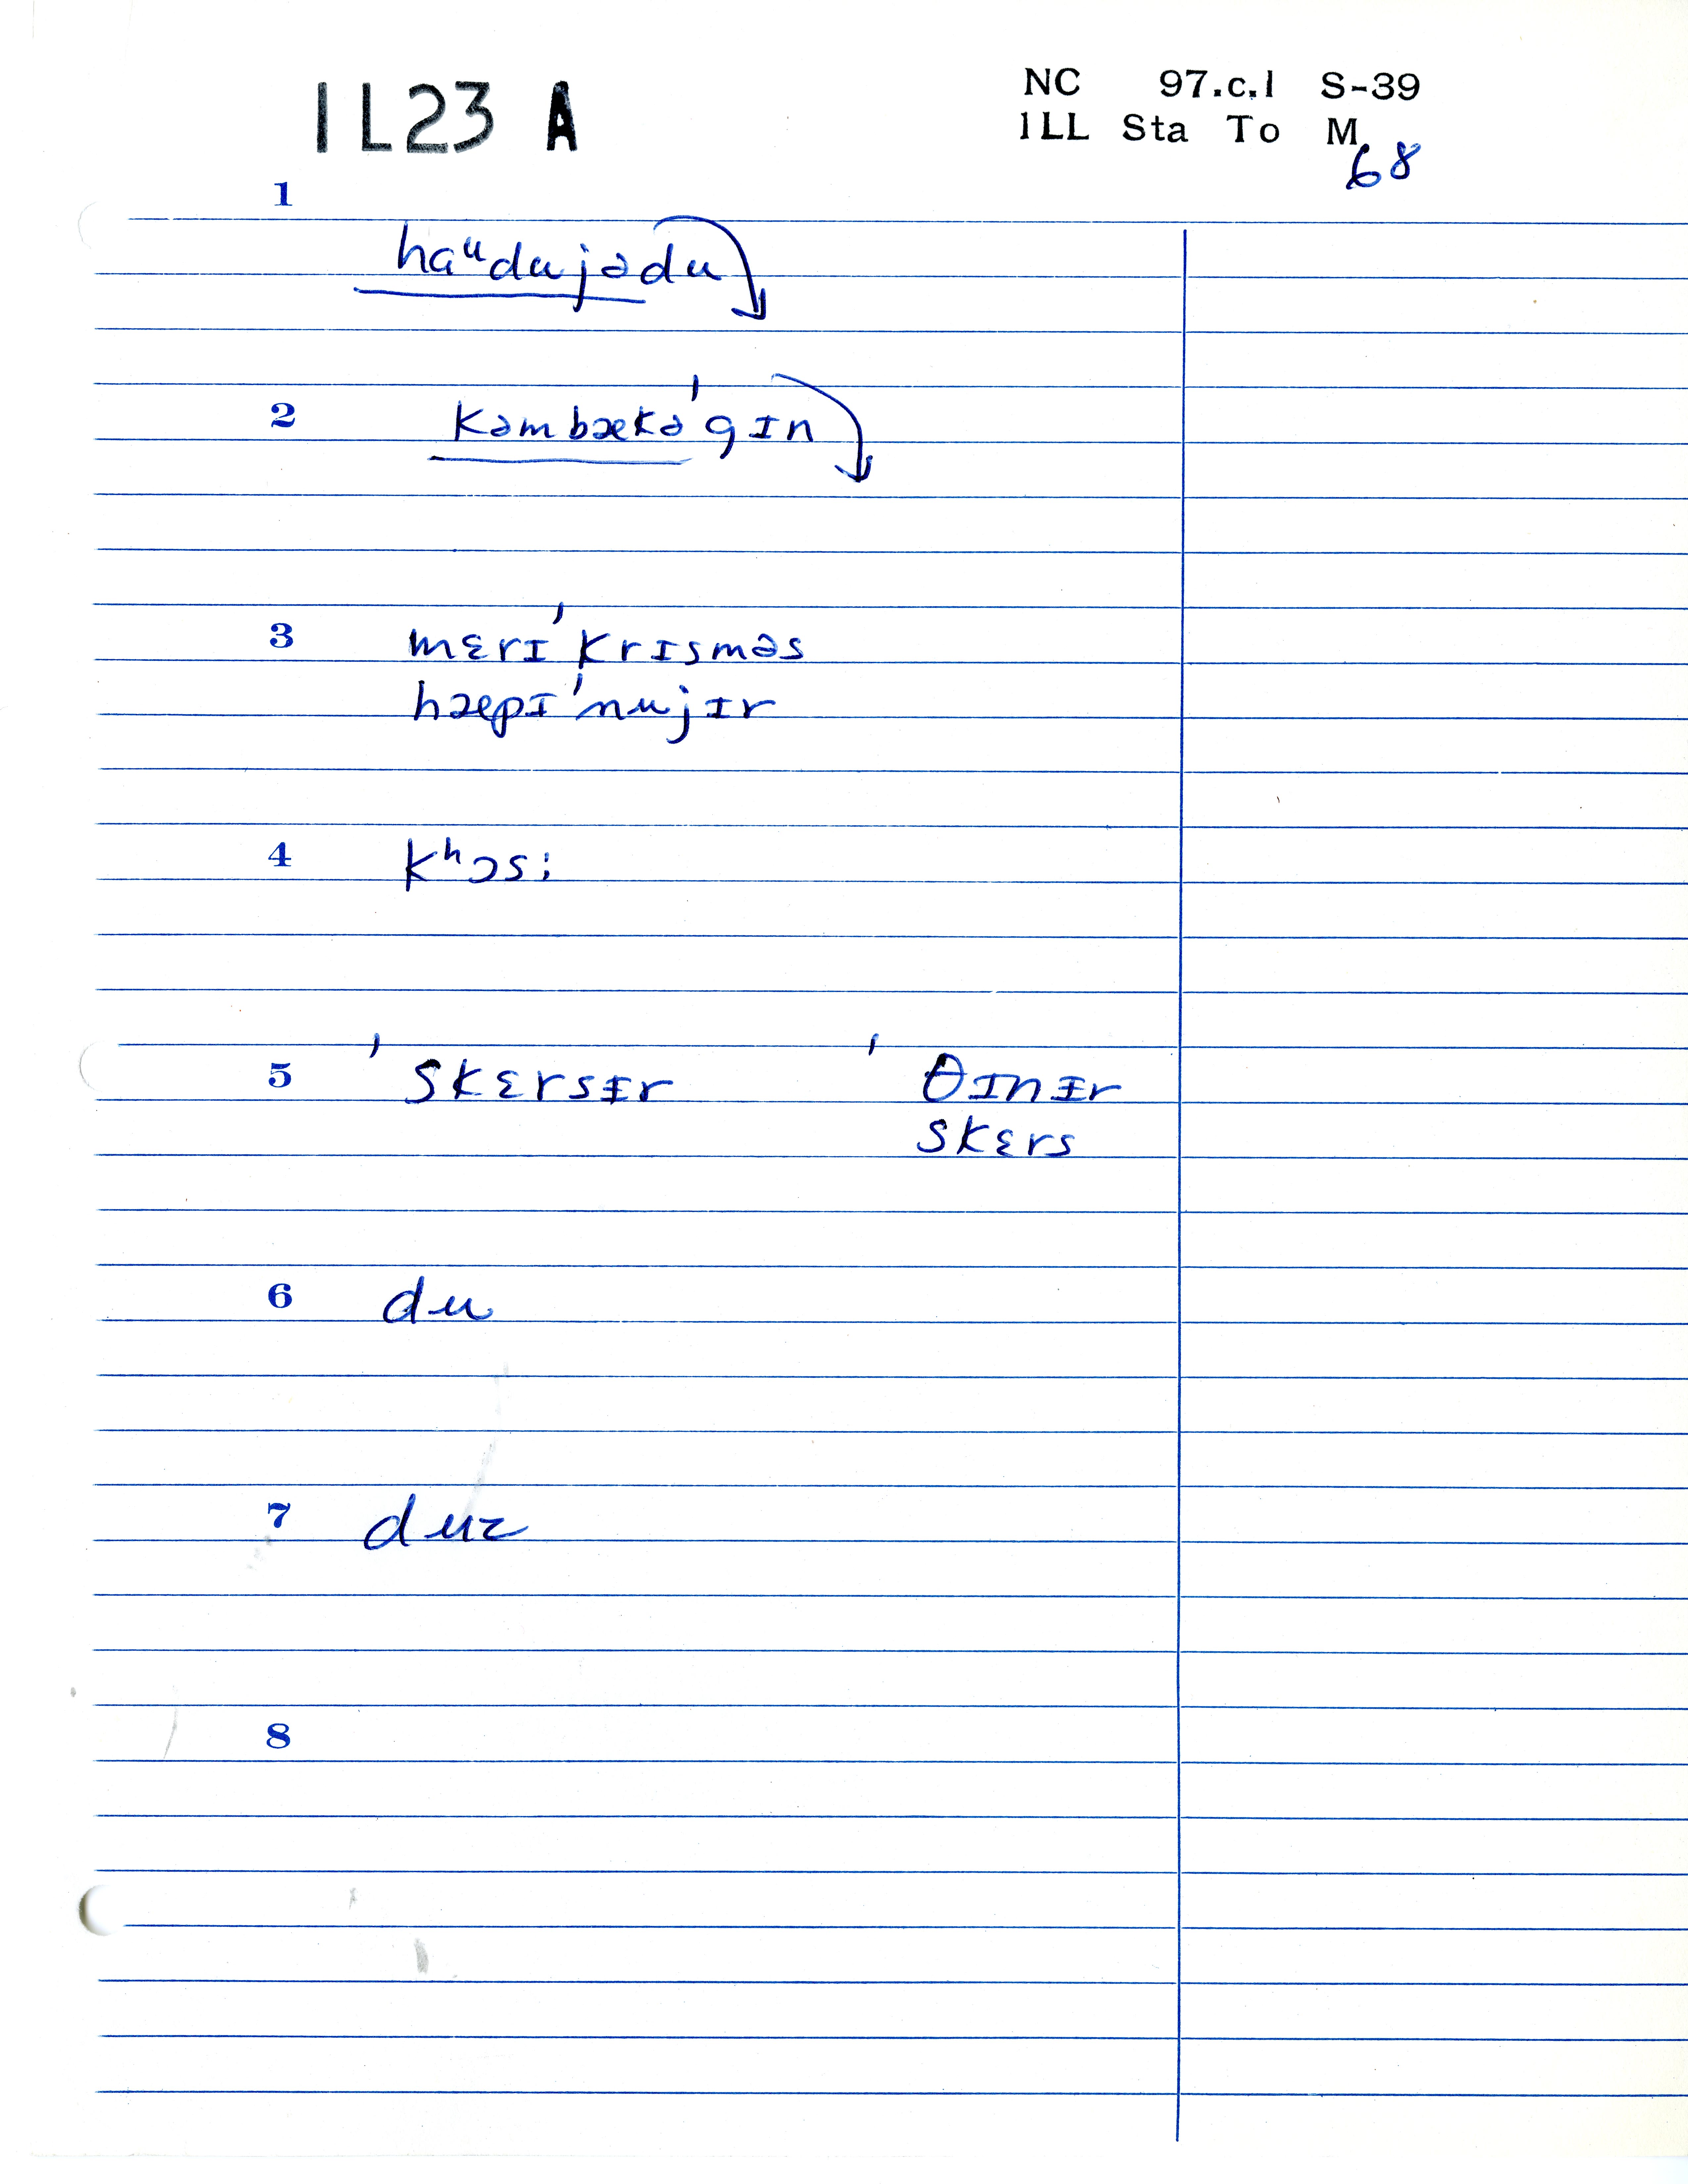 1L23 A
NC 97.c.1 S-39
1LL Sta To M
68
1
haᵘdujədu
2 kəmbækə'gɪn
3 mɛrɪ'krɪsməs
hæpɪ'nujɪr
4 kʰɔs:
5 'skɛrsɪr 'θɪnɪr
skɛrs
6 du
7 duz
8